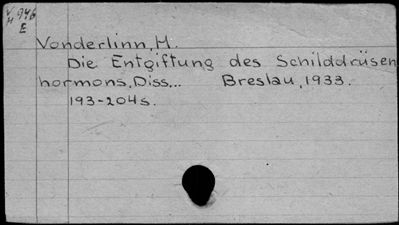 V 946
H
E
Vonderlinn, H.
Die Entgiftung des Schilddrüsen
hormons, Diss... Breslau, 1933.
193-204s.